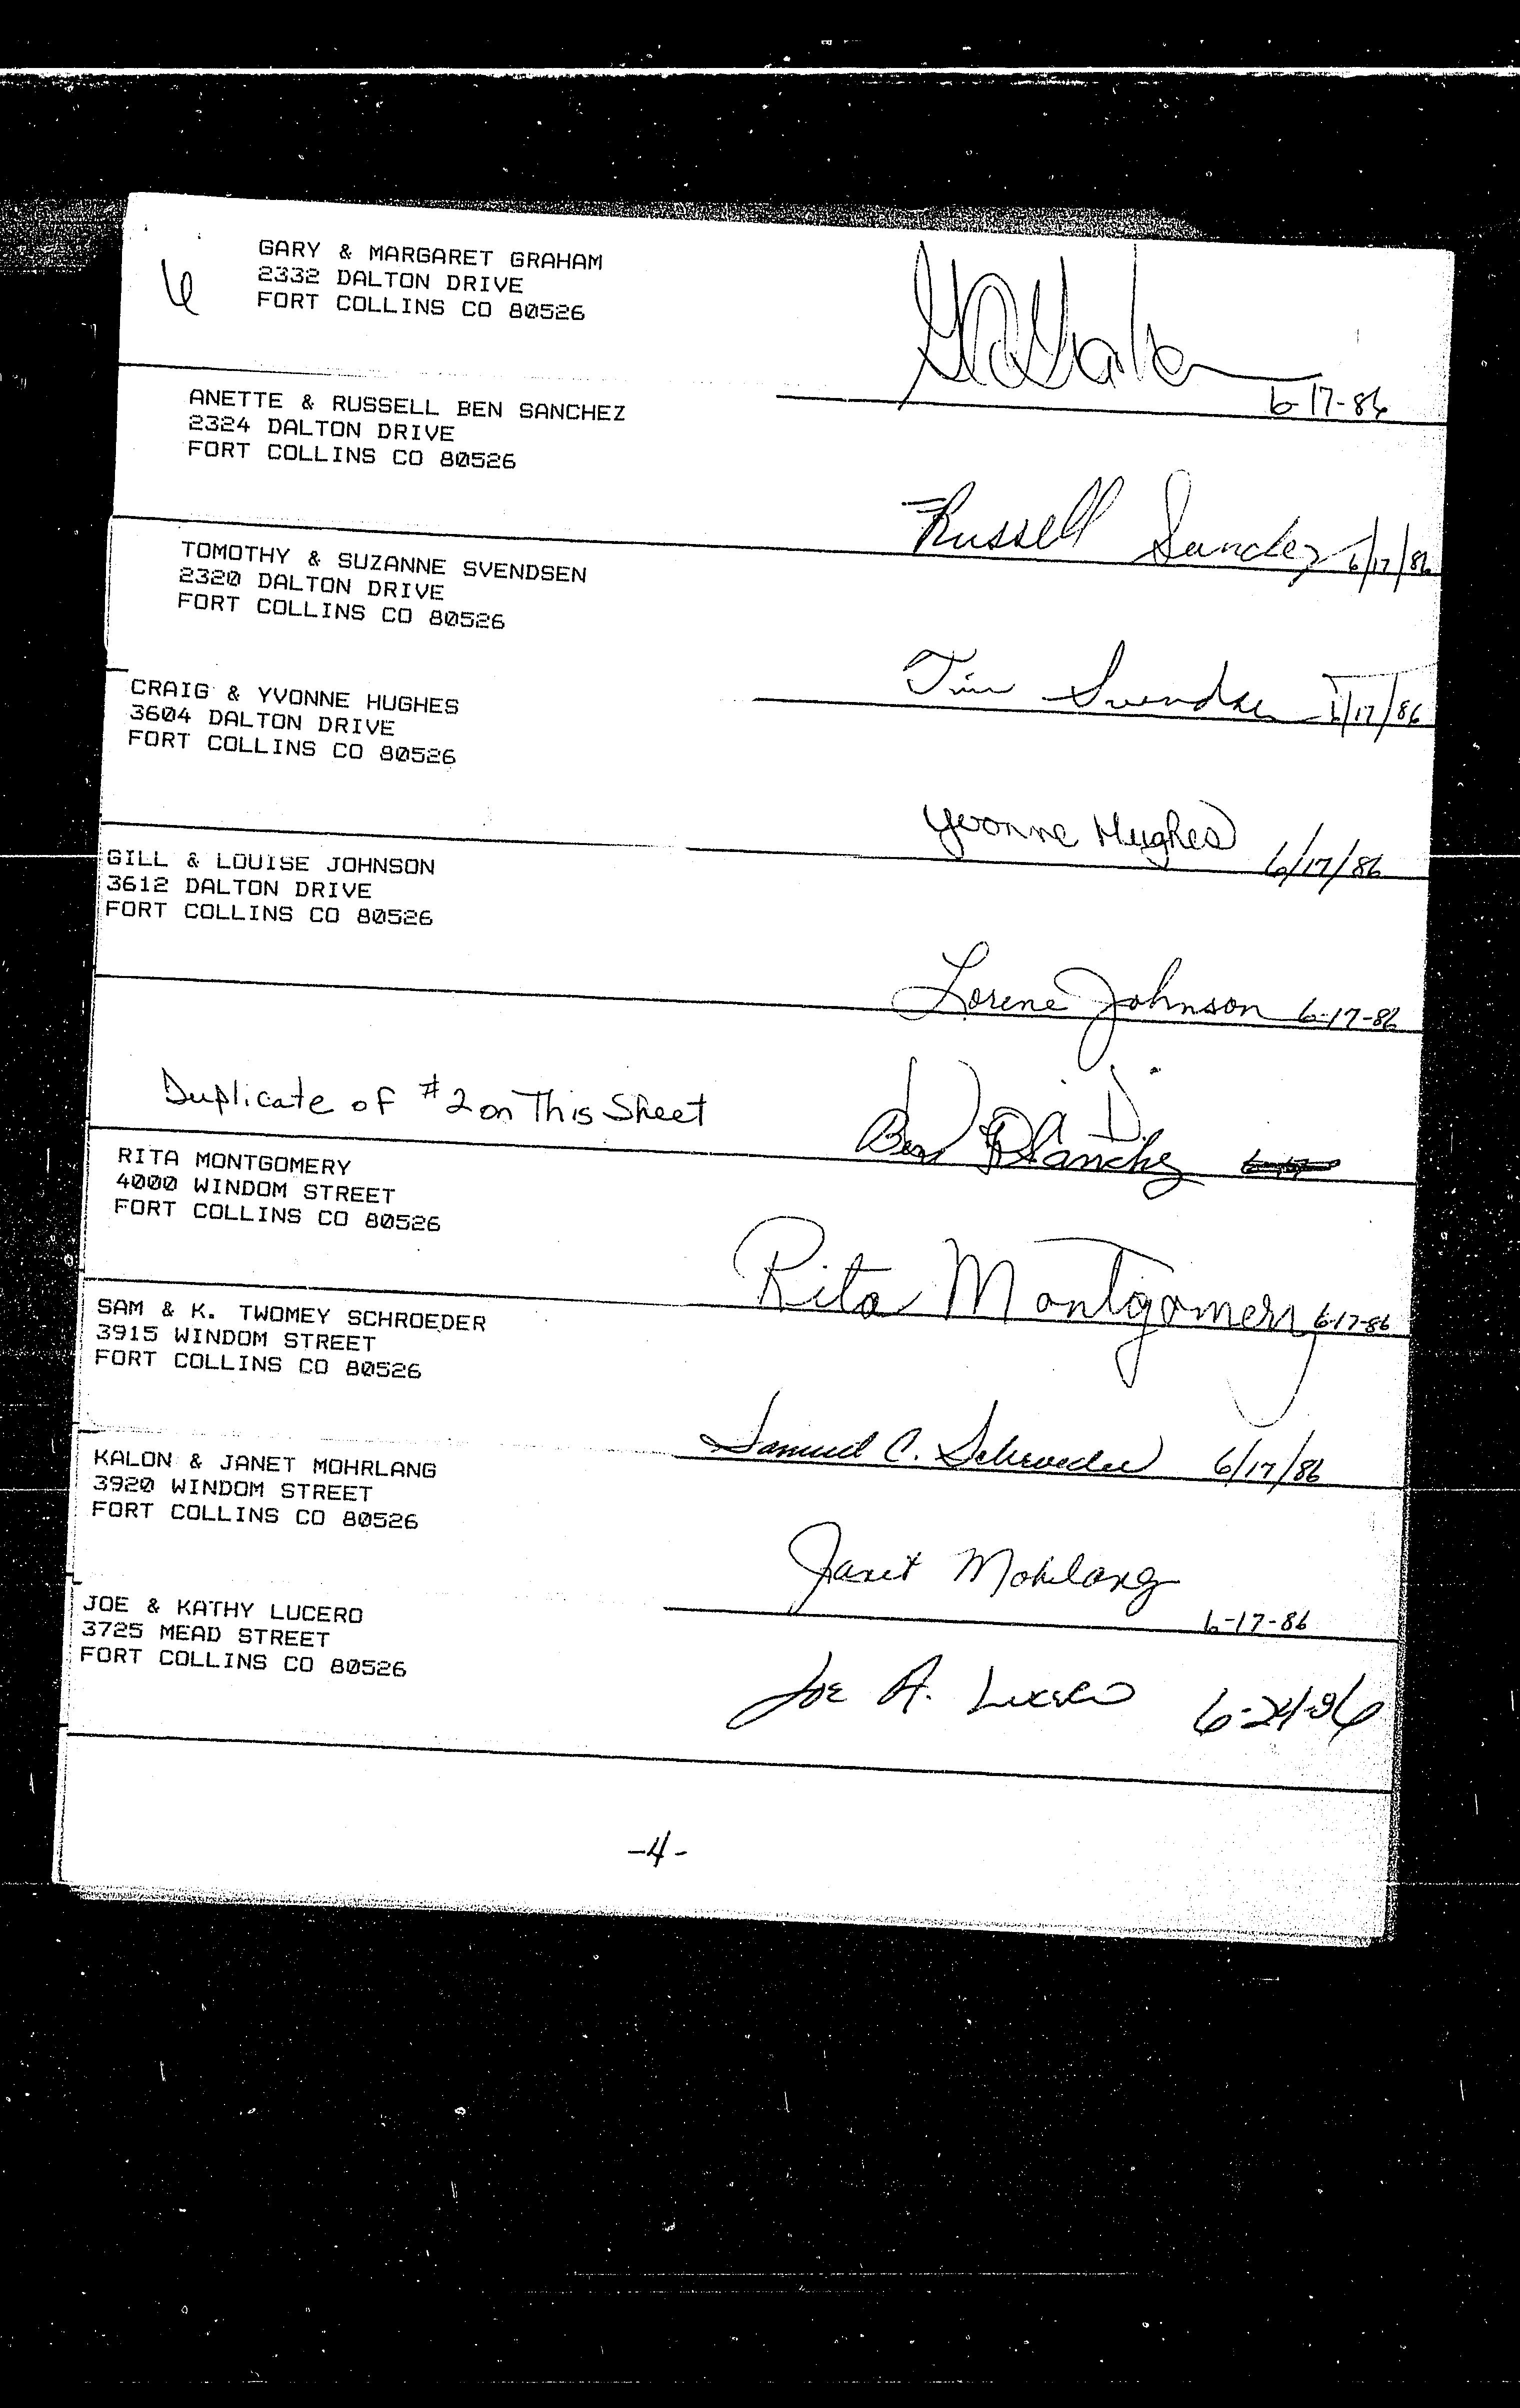 6
GARY & MARGARET GRAHAM
2332 DALTON DRIVE
FORT COLLINS CO 80526
6-17-86
ANETTE & RUSSELL BEN SANCHEZ
2324 DALTON DRIVE
FORT COLLINS CO 80526
Russell Sanchez 6/17/86
TOMOTHY & SUZANNE SVENDSEN
2320 DALTON DRIVE
FORT COLLINS CO 80526
Tim Svendsen 6/17/86
CRAIG & YVONNE HUGHES
3604 DALTON DRIVE
FORT COLLINS CO 80526
Yvonne Hughes 6/17/86
GILL & LOUISE JOHNSON
3612 DALTON DRIVE
FORT COLLINS CO 80526
Lorene Johnson 6-17-86
Duplicate of #2 on This Sheet
Ben Sanchez
RITA MONTGOMERY
4000 WINDOM STREET
FORT COLLINS CO 80526
Rita Montgomery 6-17-86
SAM & K. TWOMEY SCHROEDER
3915 WINDOM STREET
FORT COLLINS CO 80526
Samuel C. Schroeder 6/17/86
KALON & JANET MOHRLANG
3920 WINDOM STREET
FORT COLLINS CO 80526
Janet Mohrlang
6-17-86
JOE & KATHY LUCERO
3725 MEAD STREET
FORT COLLINS CO 80526
Joe A. Lucero 6-24-86
-4-